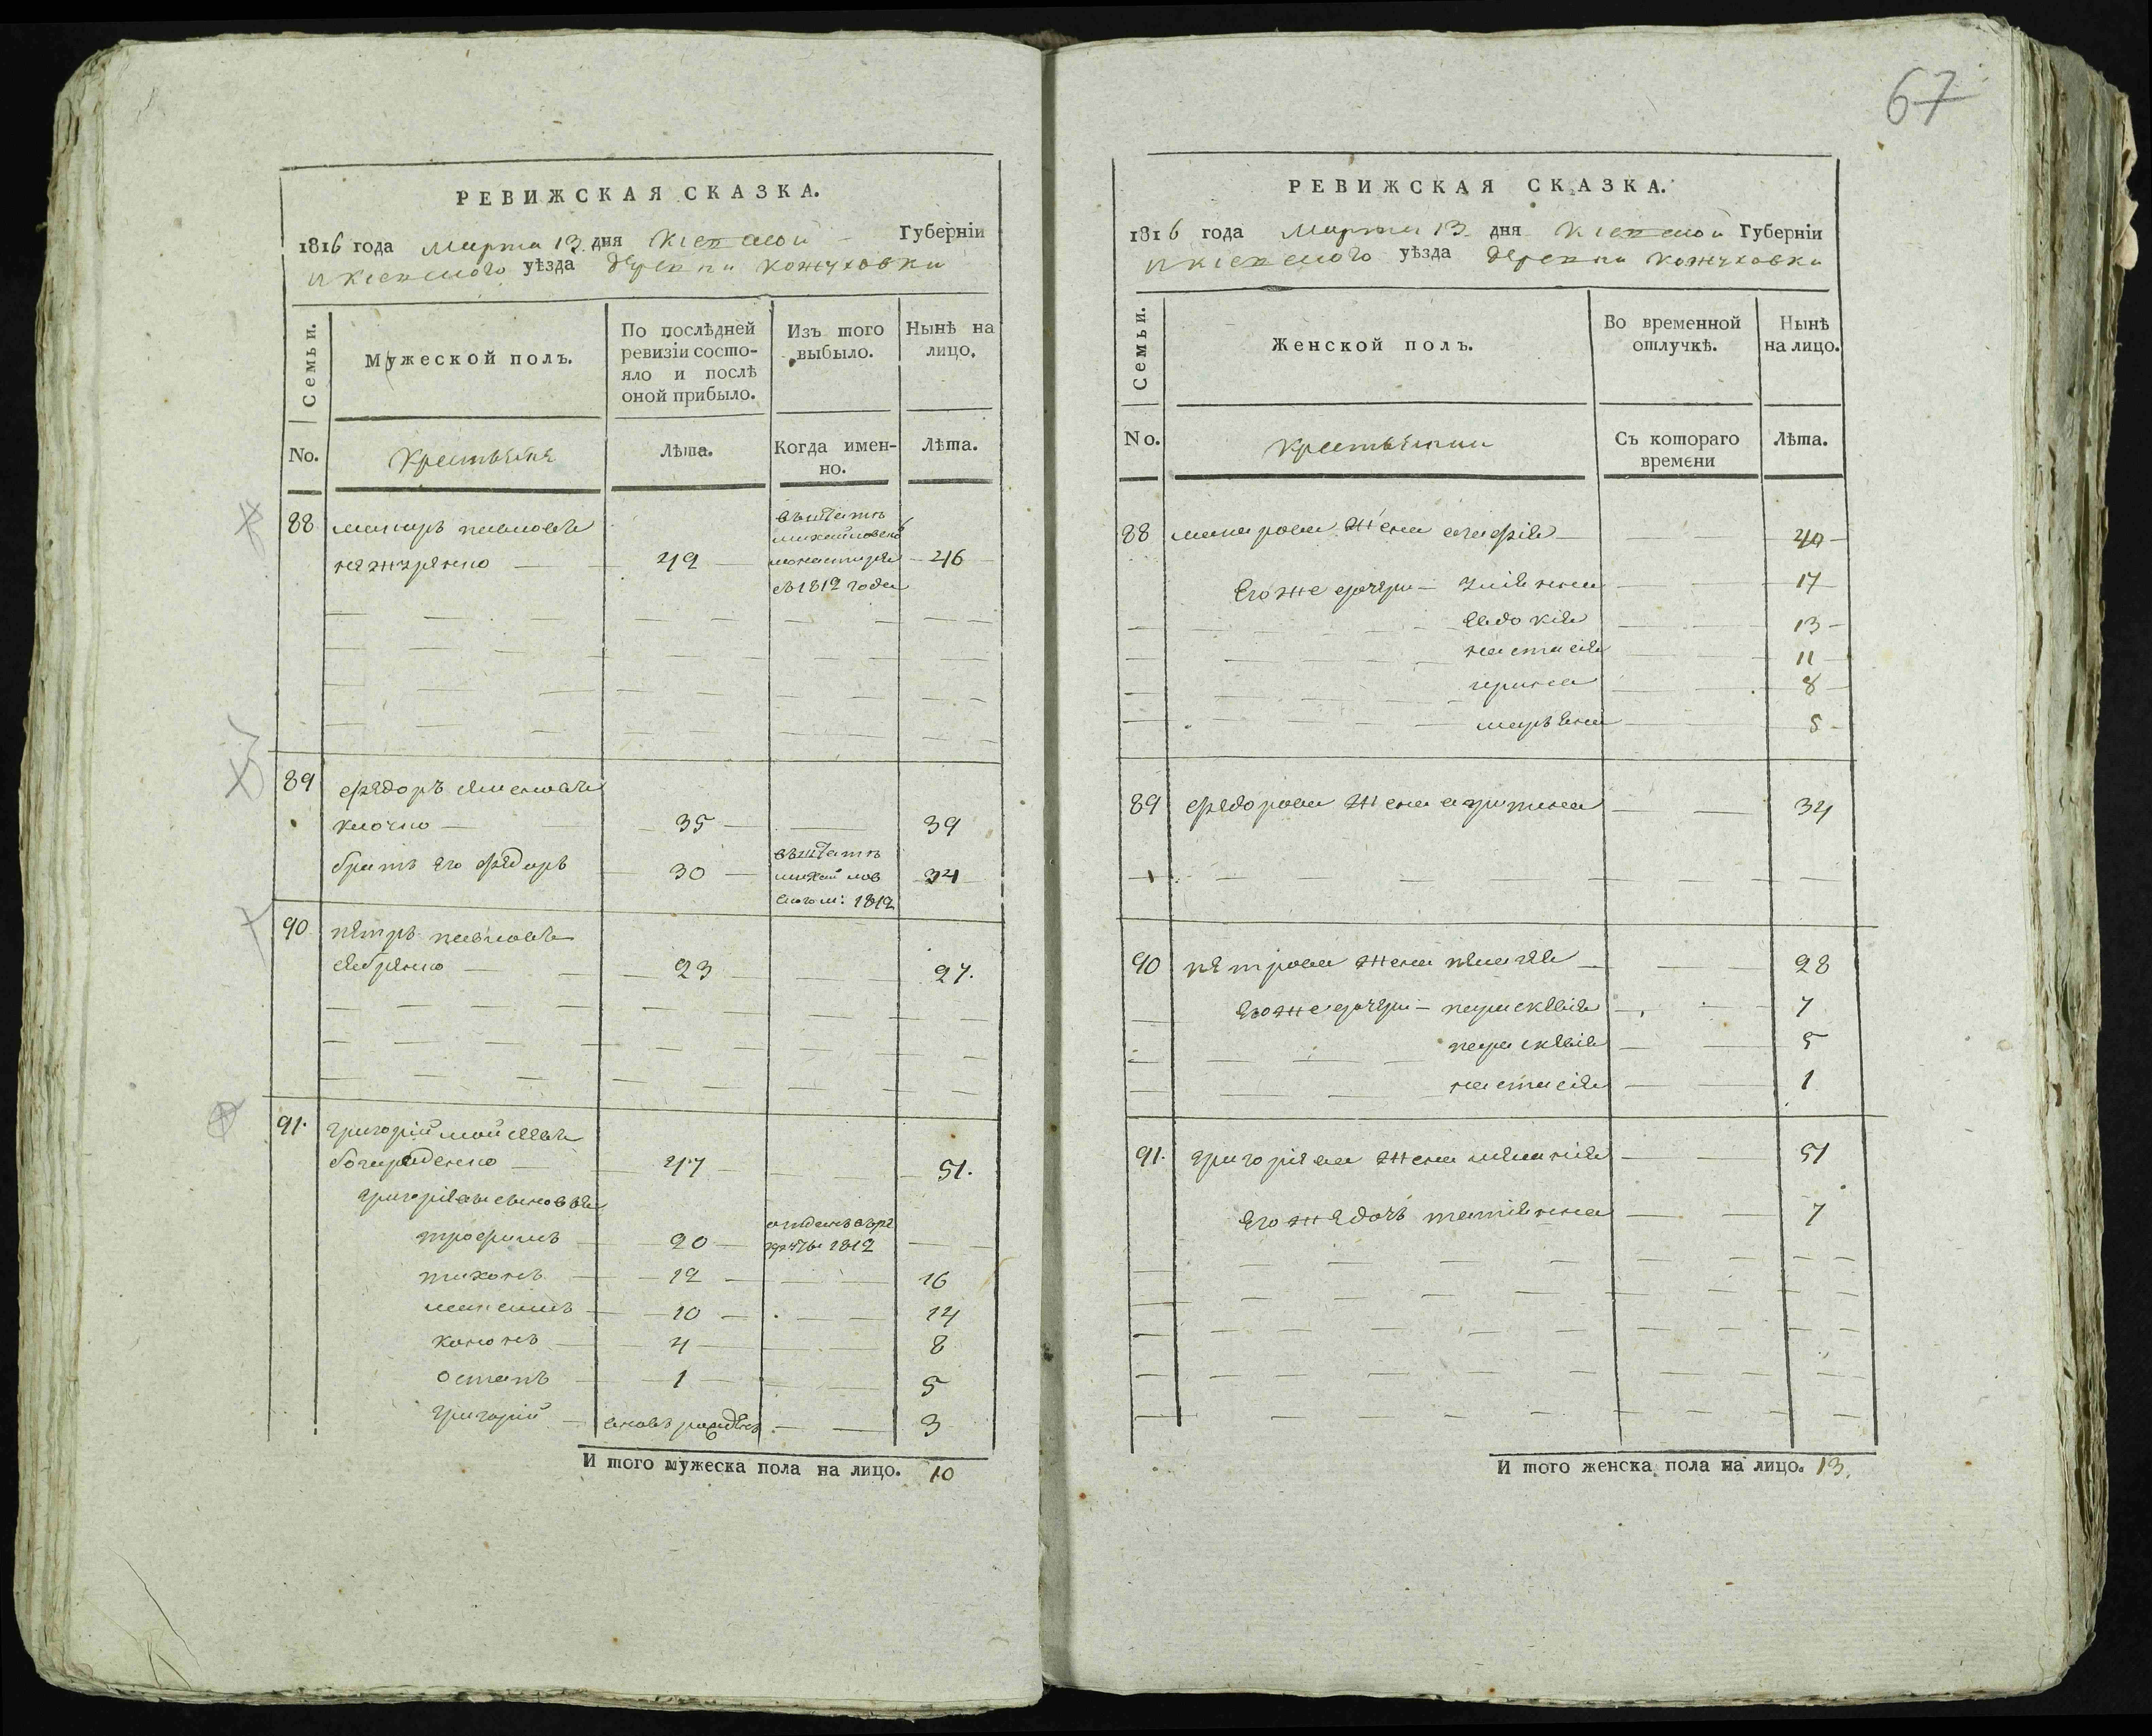 67
РЕВИЖСКАЯ СКАЗКА.
1816 года Марта 13 дня Кіевской Губерніи
и Кіевского уѣзда деревни Кожуховки
Семьи.
Мужеской полъ.
По послѣдней ревизіи состо-
яло и послѣ
оной прибыло.
Изъ того
выбыло.
Нынѣ на
лицо.
No.
Крестьяне
Лѣта.
Когда имен-
но.
Лѣта.
88 макаръ павловъ
въ штатъ
михайловского
49 монастыря 46
въ 1812 года
89 федоръ
клочко 35 39
братъ его федоръ 30 въ штатъ
михайлов
ского м: 1812 34
90 петръ павловъ
23 27.
91. григорій мойсеевъ
47 51.
григоріевы сыновья
трофимъ 20 отданъ въ ре
круты 1812
тихонъ 12 16
максимъ 10 14
кононъ 4 8
остапъ 1 5
григорій вновь рожденъ 3
И того мужеска пола на лицо. 10
РЕВИЖСКАЯ СКАЗКА.
1816 года Марта 13 дня Кіевской Губерніи
и Кіевского уѣзда деревни Кожуховки
Семьи.
Женской полъ.
Во временной
отлучкѣ.
Нынѣ
на лицо.
No.
крестьянки
Съ котораго
времени
Лѣта.
88 макарова жена агафія 40
Его же дочери уліянна 17
евдокія 13
настасія 11
ирина 8
марьяна 5
89 федорова жена агрипина 34
90 петрова жена пелагея 28
Его же дочери параскевія 7
параскевія 5
настасія 1
91. григоріева жена меланія 51
Его же дочь татіянна 7
И того женска пола на лицо. 13.